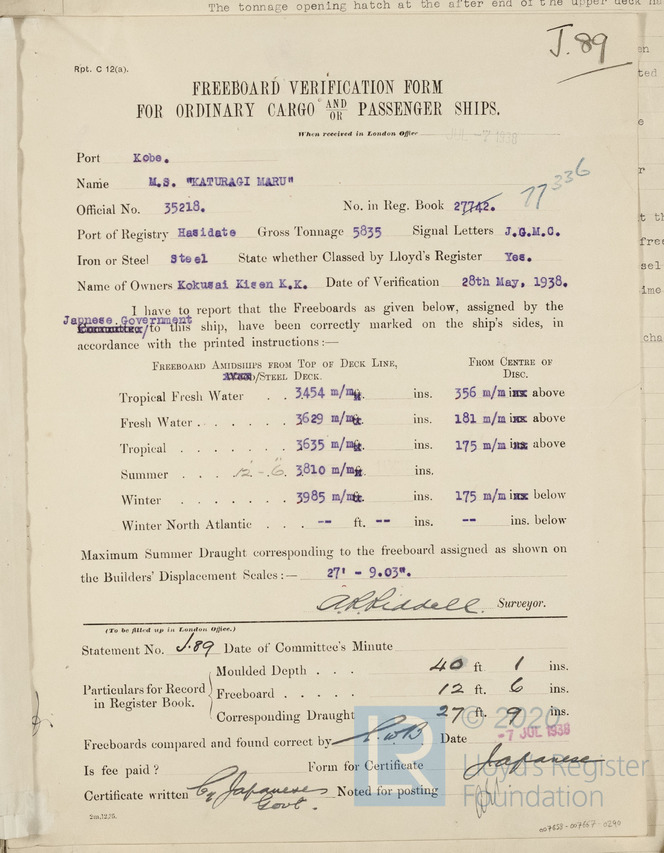 The tonnage opening hatch at the after end of the upper deck
J.89
Rpt. C 12(a).
FREEBOARD VERIFICATION FORM
FOR ORDINARY CARGO AND/OR PASSENGER SHIPS.
When received in London Office JUL -7 1938
Port Kobe.
Name M.S. "KATURAGI MARU"
77336
Official No. 35218. No. in Reg. Book 27742.
Port of Registry Hasidate Gross Tonnage 5835 Signal Letters J.G.M.C.
Iron or Steel Steel State whether Classed by Lloyd's Register Yes.
Name of Owners Kokusai Kisen K.K. Date of Verification 28th May, 1938.
I have to report that the Freeboards as given below, assigned by the
Japnese Government
Committee/to this ship, have been correctly marked on the ship's sides, in
accordance with the printed instructions:—
FREEBOARD AMIDSHIPS FROM TOP OF DECK LINE, FROM CENTRE OF
/STEEL DECK. DISC.
Tropical Fresh Water . . 3454 m/m ft. ins. 356 m/m ins above
Fresh Water . . . . . . 3629 m/m ft. ins. 181 m/m ins above
Tropical . . . . . . . 3635 m/m ft. ins. 175 m/m ins above
Summer . . . 12 - 6. 3810 m/m ft. ins.
Winter . . . . . . . 3985 m/m ft. ins. 175 m/m ins below
Winter North Atlantic . . . -- ft. -- ins. -- ins. below
Maximum Summer Draught corresponding to the freeboard assigned as shown on
the Builders' Displacement Scales:— 27' - 9.03".
A.R. Riddell. Surveyor.
(To be filled up in London Office.)
Statement No. J.89 Date of Committee's Minute
Particulars for Record in Register Book.
Moulded Depth . . . 40 ft. 1 ins.
Freeboard . . . . . 12 ft. 6 ins.
Corresponding Draught 27 ft. 9 ins.
Freeboards compared and found correct by Date -7 JUL 1938
Is fee paid? Form for Certificate Japanese
Certificate written By Japanese Govt. Noted for posting
2m,12,35.
007653-007667-0290
LR
© 2020
Lloyd's Register
Foundation